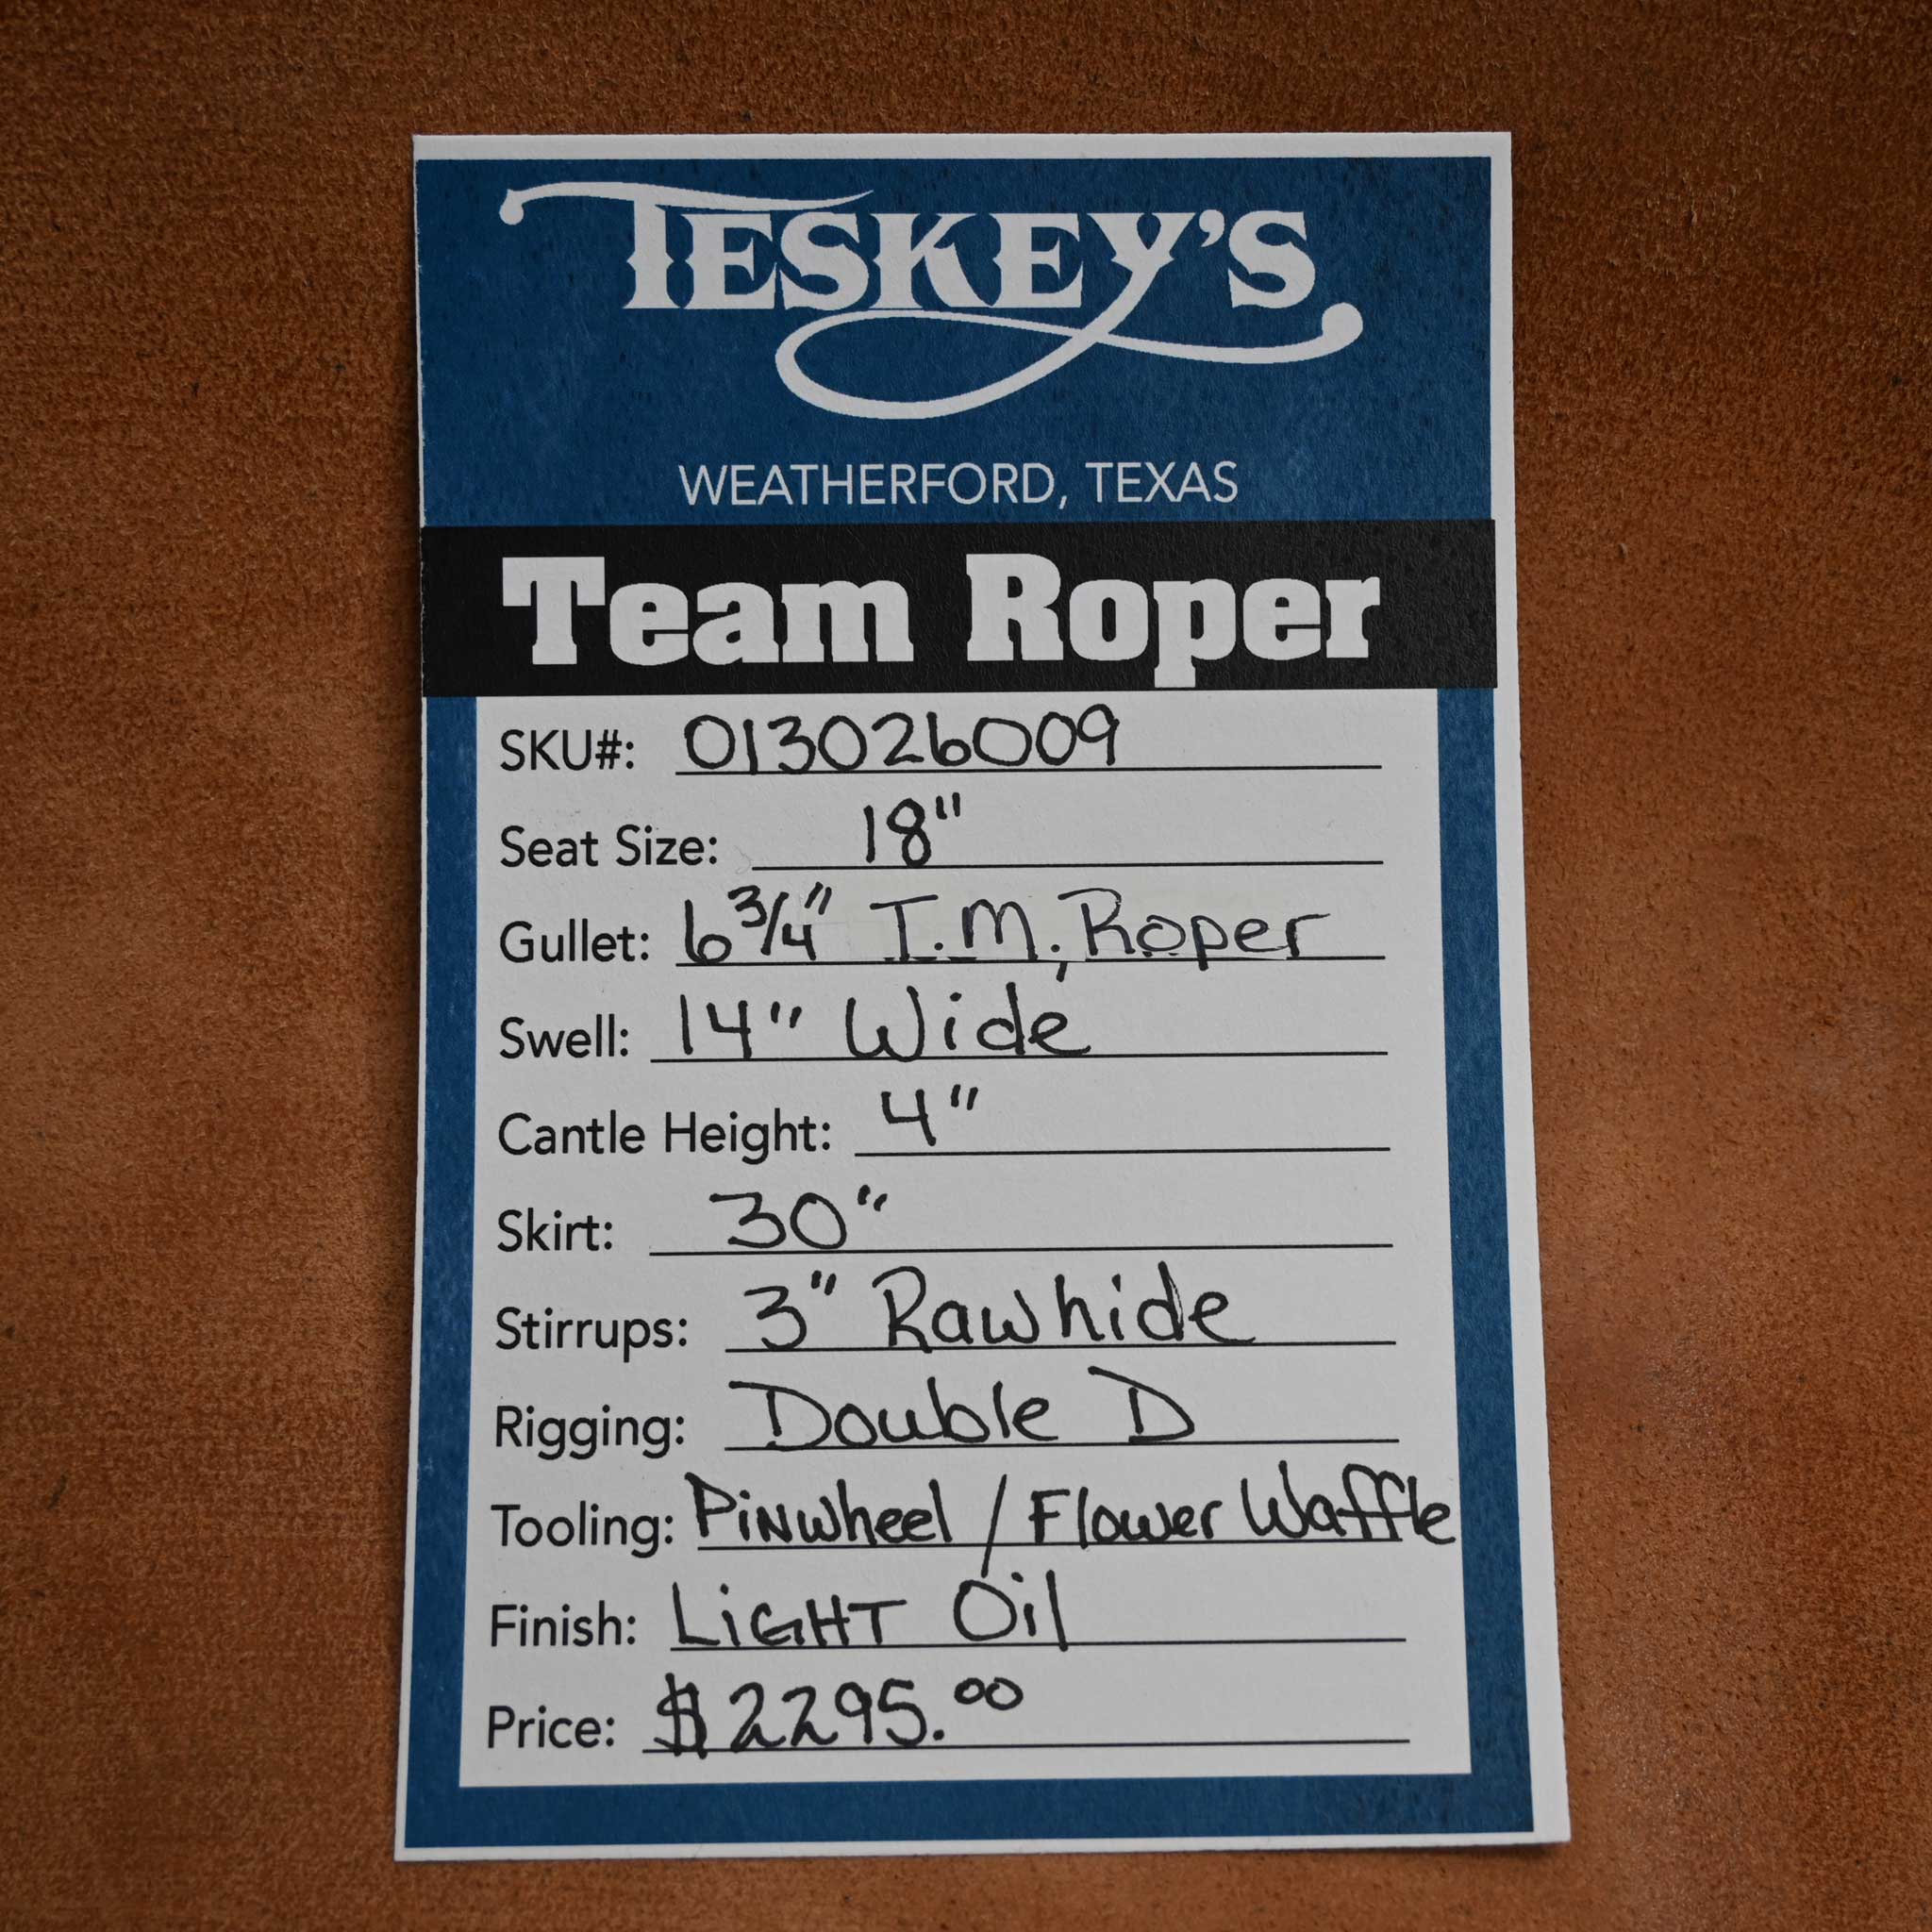 TESKEY'S
WEATHERFORD, TEXAS
Team Roper
SKU#: 013026009
Seat Size: 18"
Gullet: 6 3/4" I.M. Roper
Swell: 14" Wide
Cantle Height: 4"
Skirt: 30"
Stirrups: 3" Rawhide
Rigging: Double D
Tooling: Pinwheel / Flower Waffle
Finish: LiGHT Oil
Price: $2295.00